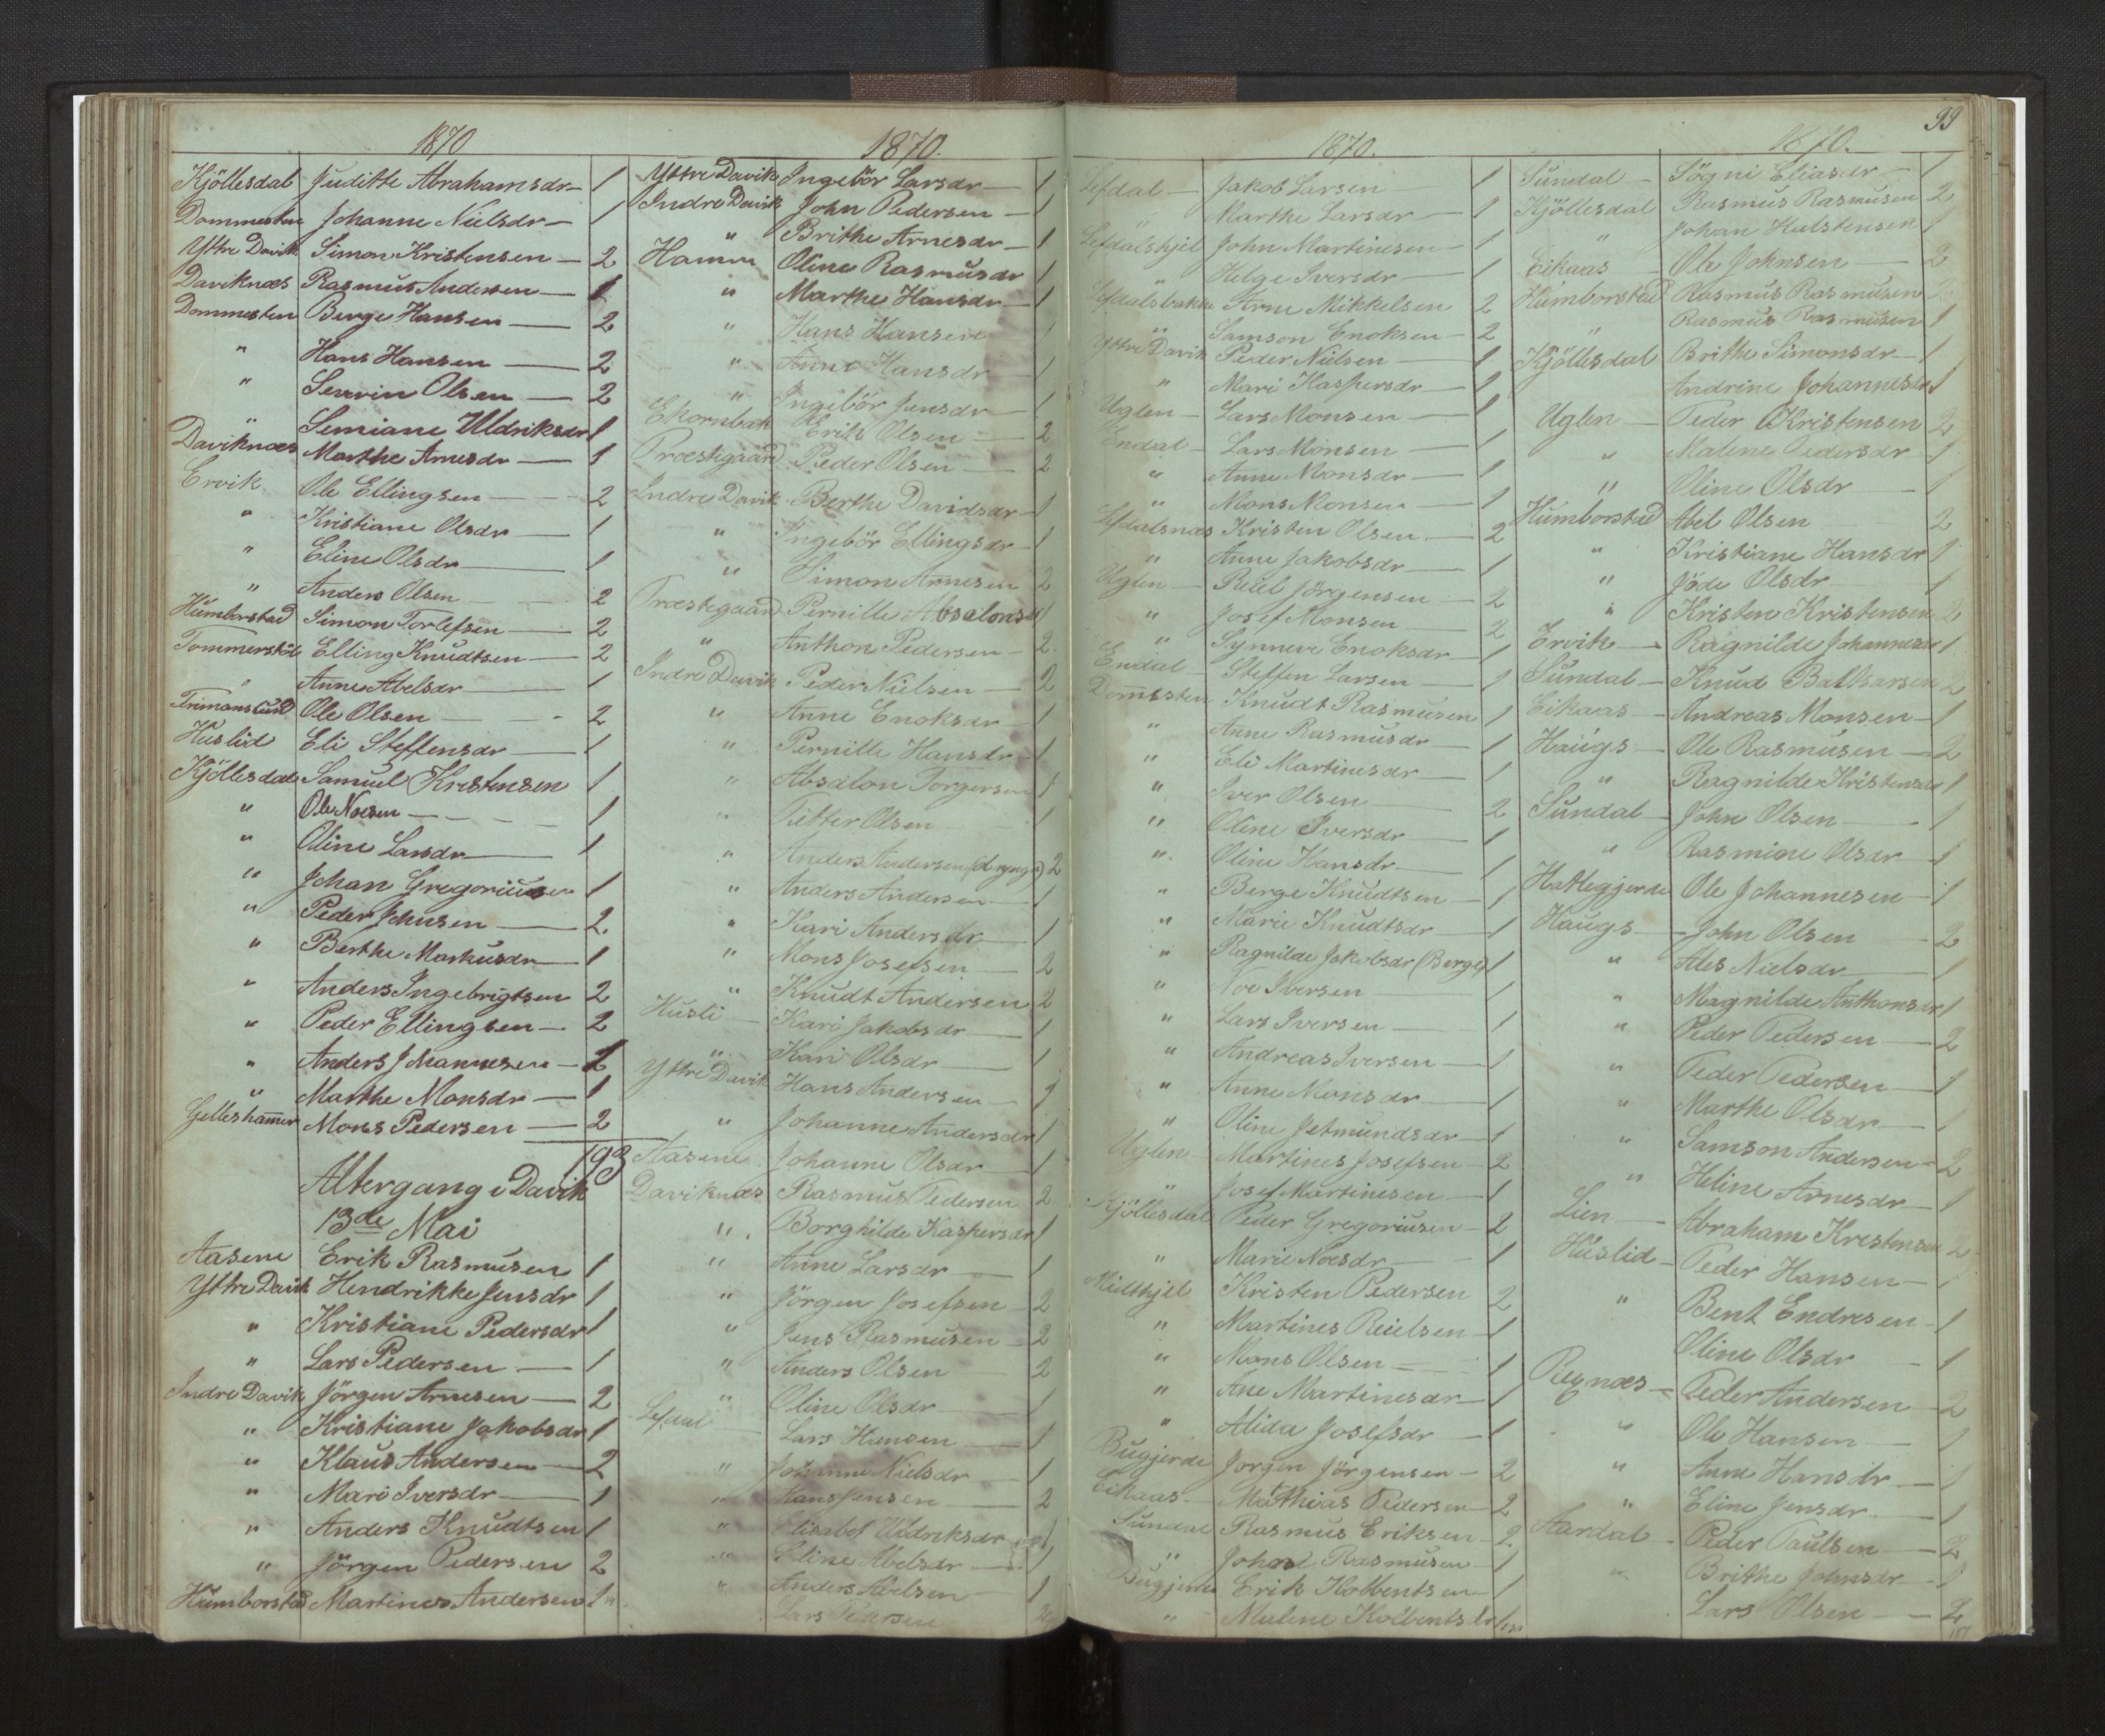 1870
Kjöllesdal Juditte Abrahamsdr — 1
Dommesten Johanne Nielsdr — 1
Yttre Davik Simon Kristensen — 2
Daviknæs Rasmus Andersen — 1
Dommesten Berge Hansen — 2
" Hans Hansen — 2
" Severin Olsen — 2
" Semiane Uldriksdr 1
Daviknæs Marthe Arnesdr — 1
Ervik Ole Ellingsen — 2
" Kristiane Olsdr — 1
" Eline Olsdr — 1
" Anders Olsen — 2
Humborstad Simon Torlefsen — 2
Tommerstöl Elling Knudtsen — 2
" Anne Abelsdr — 1
Ole Olsen — 2
Huslid Eli Steffensdr — 1
Kjöllesdal Samuel Kristensen 1
" Ole Noesen — 1
" Oline Larsdr — 1
" Johan Gregoriusen 1
" Peder Johnsen — 2
" Berthe Markusdr — 1
" Anders Ingebrigtsen 2
" Peder Ellingsen — 2
" Anders Johannesen —
" Marthe Monsdr — 1
Gelleshammer Mons Pedersen — 2
193
Altergang i Davik
13de Mai
Aasene Erik Rasmusen 1
Yttre Davik Hendrikke Jensdr 1
" Kristiane Pedersdr 1
" Lars Pedersen — 1
Indre Davik Jörgen Arnesen — 2
" Kristiane Jakobsdr 1
" Klaus Andersen — 2
" Mari Iversdr — 1
" Anders Knudtsen 1
" Jörgen Pedersen 2
Humborstad Martines Andersen 1
1870.
Yttre Davik Ingebör Larsdr — 1
Indre Davik John Pedersen — 1
" Brithe Arnesdr — 1
Hamre Oline Rasmusdr 1
" Marthe Hansdr — 1
" Hans Hansen 1
" Anne Hansdr — 1
" Ingebör Jensdr — 1
Ekornbak Erik Olsen — 2
Præstegaard Peder Olsen — 2
Indre Davik Berthe Davidsdr — 1
" Ingebör Ellingsdr — 1
" Simon Arnesen 2
Præstegaard Pernille Absalonsdr 1
" Anthon Pedersen — 2
Indre Davik Peder Nielsen — 2
" Anne Enoksdr — 1
" Pernille Hansdr — 1
" Absalon Torgersen 1
" Olsen 1
" Anders Andersen (d yngre) 2
" Anders Andersen — 1
" Kari Andersdr — 1
" Mons Josefsen — 2
" Knudt Andersen 2
Husli — Kari Jakobsdr — 1
" Kari Olsdr — 1
Yttre Davik Hans Andersen —
" Johanne Andersdr 1
Aasene Johanne Olsdr — 1
Daviknæs Rasmus Pedersen 2
" Borghilde Kaspersdr 1
" Anne Larsdr — 1
" Jörgen Josefsen — 2
" Jens Rasmusen — 2
" Anders Olsen 2
" Oline Olsdr — 1
Lefdal — Lars Hansen — 1
" Johanne Nielsdr — 1
" Hans Jensen — 2
" Elisabet Uldriksdr 1
" Eline Abelsdr — 1
" Anders Abelsen — 1
Lars Pedersen
1870.
Lefdal — Jakob Larsen — 1
" Marthe Larsdr — 1
Lefdalshjel John Martinesen — 1
" Helge Iversdr — 1
Lefdalsbakke Arne Mikkelsen 2
" Samson Enoksen — 2
Yttre Davik Peder Nielsen — 1
" Mari Kaspersdr — 1
Uglen — Lars Monsen — 1
Endal — Lars Monsen — 1
" Anne Monsdr — 1
" Mons Monsen — 1
Lefdalsnæs Kristen Olsen — 2
" Anne Jakobsdr — 1
Uglen — Reiel Jörgensen — 2
" Josef Monsen — 2
" Synneve Enoksdr — 1
Endal — Steffen Larsen — 1
Dommesten Knudt Rasmusen 1
" Anne Rasmusdr — 1
" Eli Martinesdr — 1
" Iver Olsen — 2
" Oline Iversdr — 1
" Oline Hansdr — 1
" Berge Knudtsen — 1
" Marie Knudtsdr — 1
" Ragnilde Jakobsdr (Berge) 1
" Noe Iversen — 1
" Lars Iversen — 1
" Andreas Iversen — 1
" Anne Monsdr — 1
" Oline Jetmundsdr — 1
Uglen — Martines Josefsen — 2
" Josef Martinesen — 1
Kjöllesdal Peder Gregoriusen — 2
" Marie Noesdr — 1
Midthjel Kristen Pedersen 2
" Martines Reielsen — 1
" Mons Olsen — 1
" Ane Martinesdr — 1
" Alida Josefsdr — 1
Bugjerde Jorgen Jörgensen — 2
Eikaas — Mathias Pedersen — 2
Sundal Rasmus Eriksen — 2
" John Rasmusen — 1
Bugjerde Erik Kolbentsen — 1
" Malene Kolbentsdr 1
99
1870.
Sundal — Sögni Eliasdr — 1
Kjöllesdal Rasmus Rasmusen 2
" Johan Halstensen 1
Eikaas — Ole Johnsen — 2
Humborstad Rasmus Rasmusen 2
" Rasmus Rasmusen 1
Kjöllesdal Brithe Simonsdr — 1
Andrine Johannesdr 1
Uglen — Peder Kristensen 2
" Malene Pedersdr 1
" Oline Olsdr — 1
Humborstad Abel Olsen 2
" Kristiane Hansdr 1
" Jöde Olsdr 1
" Kristen Kristensen 2
Ervik — Ragnilde Johannesdr 1
Sundal — Knud Baltsarsen 2
Eikaas — Andreas Monsen — 1
Haugs — Ole Rasmusen — 2
" Ragnilde Kristensdr 1
Sundal — John Olsen — 1
" Rasmine Olsdr — 1
Hatlegjerde Ole Johannesen — 1
Haugs — John Olsen — 2
" Ales Nielsdr — 1
" Magnilde Anthonsdr 1
" Peder Pedersen — 2
" Peder Pedersen — 1
" Marthe Olsdr — 1
" Samson Andersen — 2
" Heline Arnesdr — 1
Lien — Abraham Kristensen 2
Huslid — Peder Hansen — 1
" Bent Endresen — 1
Oline Olsdr — 1
Rignæs — Peder Andersen — 2
" Ole Hansen — 1
" Anne Hansdr — 1
" Eline Jensdr — 1
Aardal — Peder Paulsen — 2
" Brithe Johnsdr — 1
Lars Olsen — 2